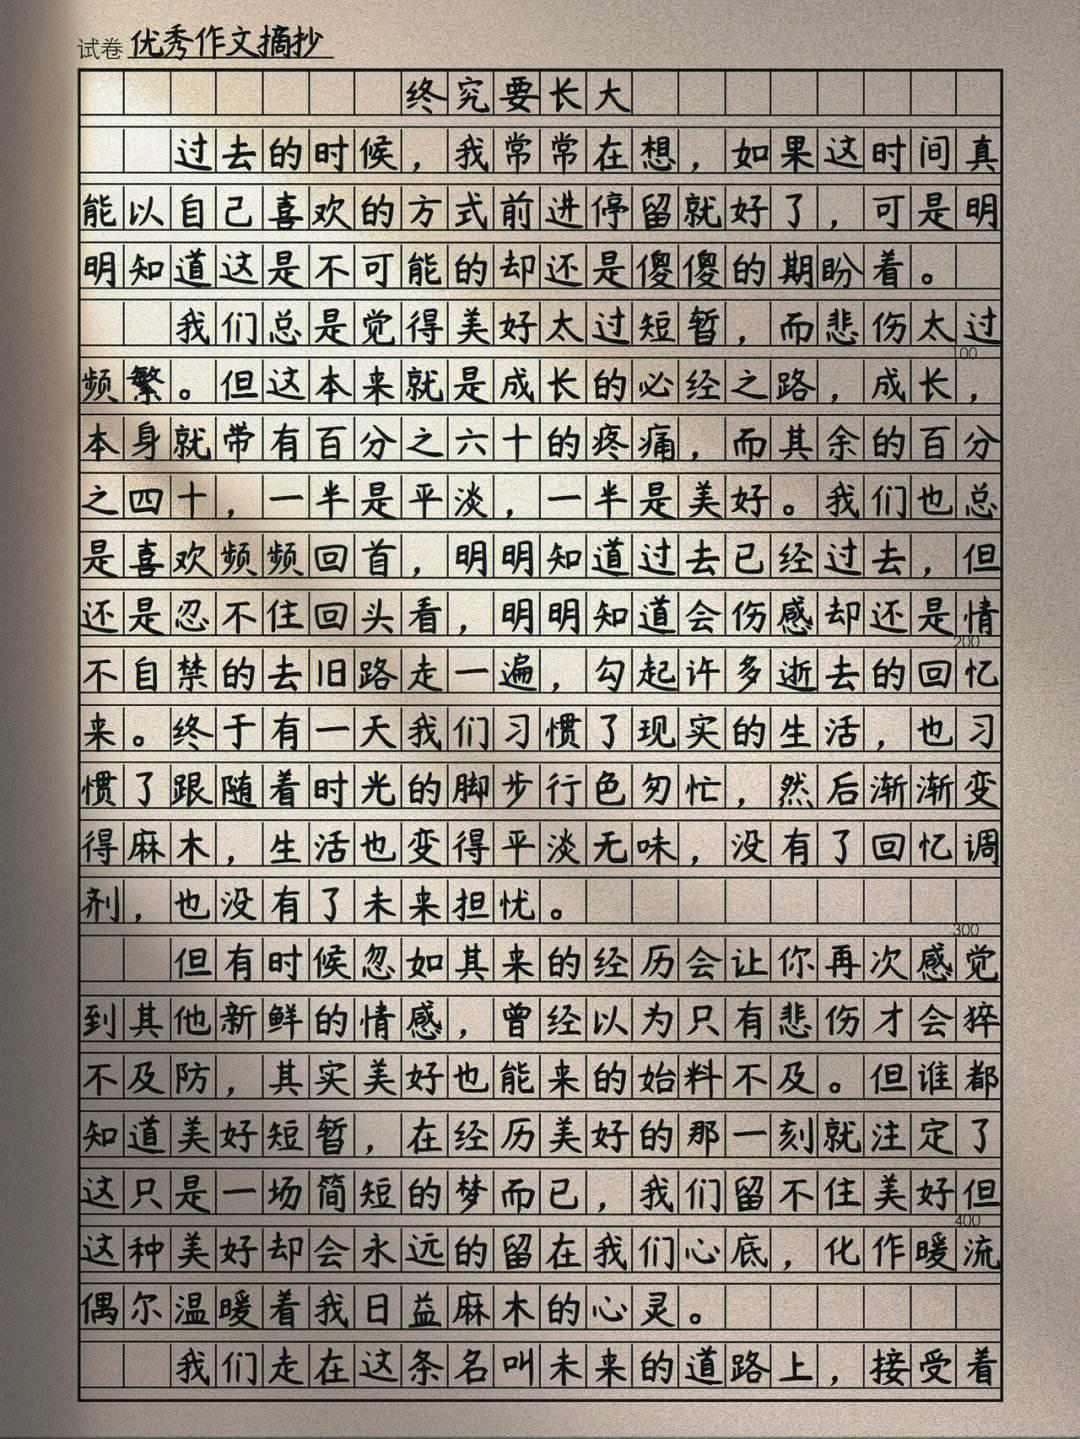 试卷 优秀作文摘抄
终究要长大
过去的时候，我常常在想，如果这时间真
能以自己喜欢的方式前进停留就好了，可是明
明知道这是不可能的却还是傻傻的期盼着。
我们总是觉得美好太过短暂，而悲伤太过
100
频繁。但这本来就是成长的必经之路，成长，
本身就带有百分之六十的疼痛，而其余的百分
之四十，一半是平淡，一半是美好。我们也总
是喜欢频频回首，明明知道过去已经过去，但
还是忍不住回头看，明明知道会伤感却还是情
200
不自禁的去旧路走一遍，勾起许多逝去的回忆
来。终于有一天我们习惯了现实的生活，也习
惯了跟随着时光的脚步行色匆忙，然后渐渐变
得麻木，生活也变得平淡无味，没有了回忆调
剂，也没有了未来担忧。
300
但有时候忽如其来的经历会让你再次感觉
到其他新鲜的情感，曾经以为只有悲伤才会猝
不及防，其实美好也能来的始料不及。但谁都
知道美好短暂，在经历美好的那一刻就注定了
这只是一场简短的梦而已，我们留不住美好但
400
这种美好却会永远的留在我们心底，化作暖流
偶尔温暖着我日益麻木的心灵。
我们走在这条名叫未来的道路上，接受着